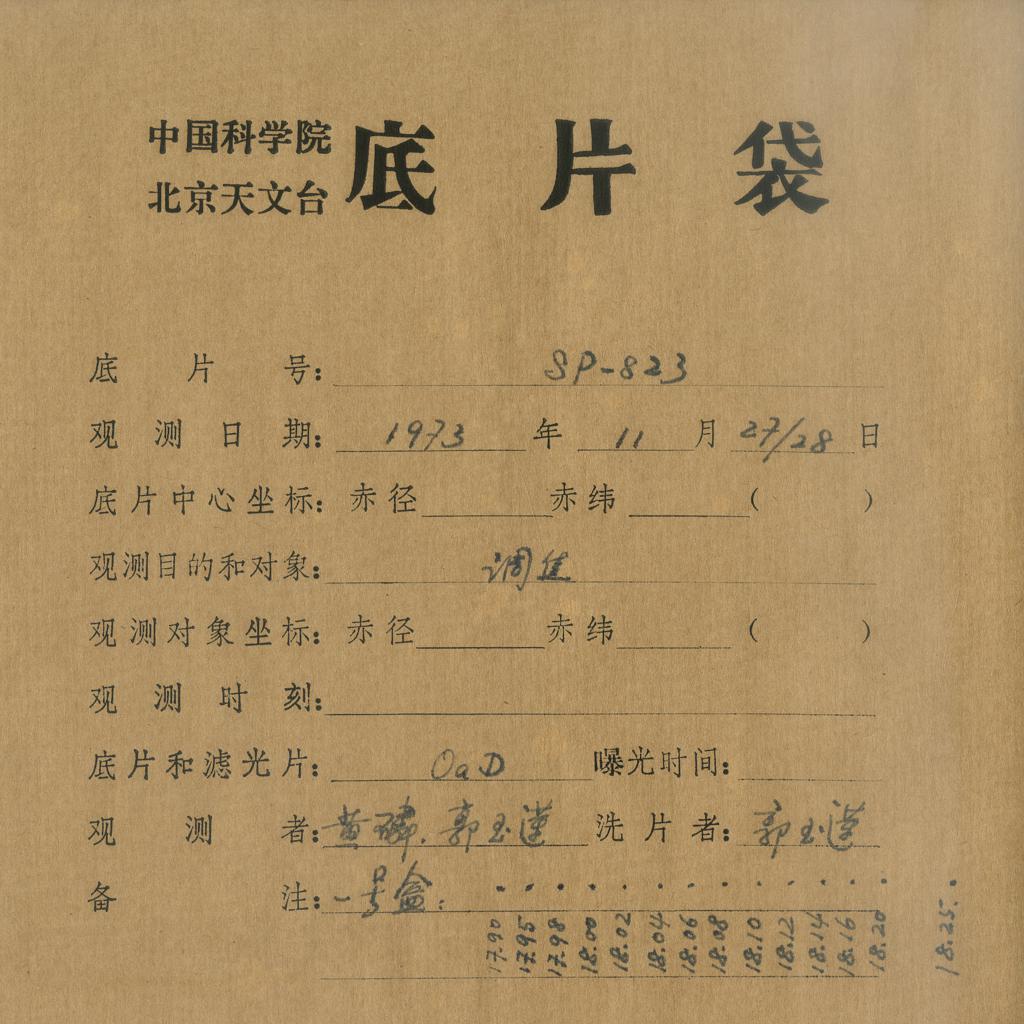 中国科学院
北京天文台
底片袋
底片号：SP-823
观测日期：1973年11月27/28日
底片中心坐标：赤径 赤纬 （ ）
观测目的和对象：调焦
观测对象坐标：赤径 赤纬 （ ）
观测时刻：
底片和滤光片：OaD 曝光时间：
观测者：黄磷.郭玉 洗片者：郭玉
备注：一号盒：
17.90 17.95 17.98 18.00 18.02 18.04 18.06 18.08 18.10 18.12 18.14 18.16 18.20 18.25.